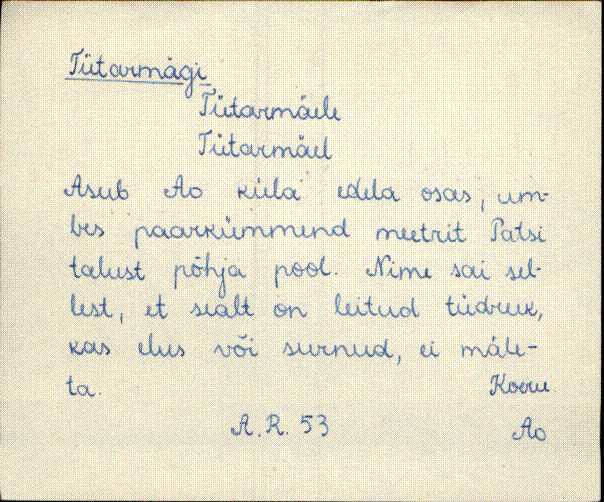 Tütarmägi
Tütarmäele
Tütarmäel
Asub Ao küla edela osas, um-
bes paarkümmend meetrit Patsi
talust põhja pool. Nime sai sel-
lest, et sealt on leitud tüdruk,
kas elus või surnud, ei mäle-
ta. Koeru
A.R. 53 Ao